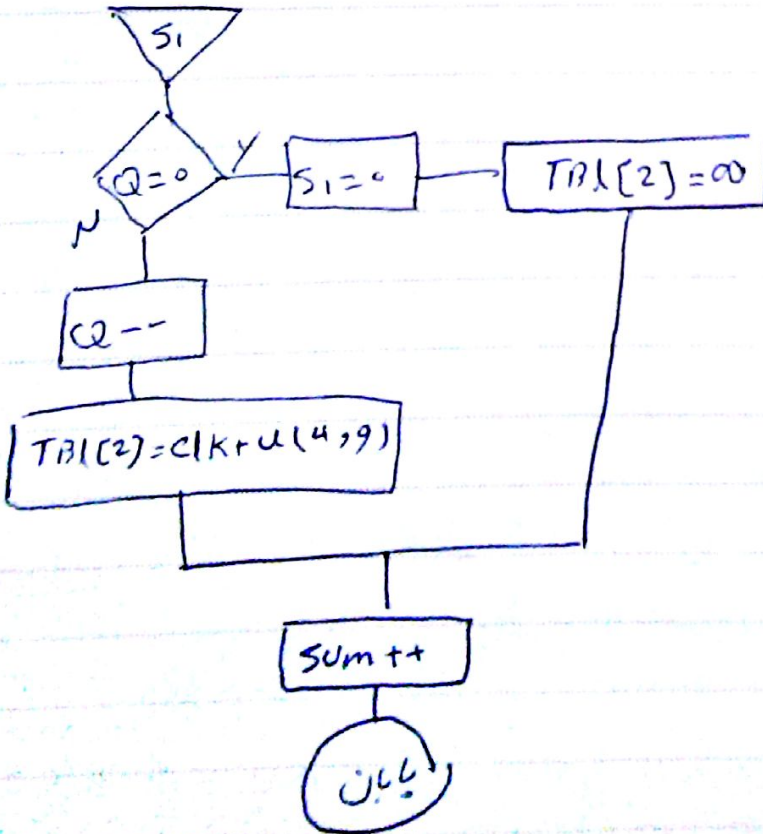 S1
Q=0
Y
S1=0
TBL[2]=∞
N
Q--
TBL[2]=clk+u(4,9)
Sum++
پایان